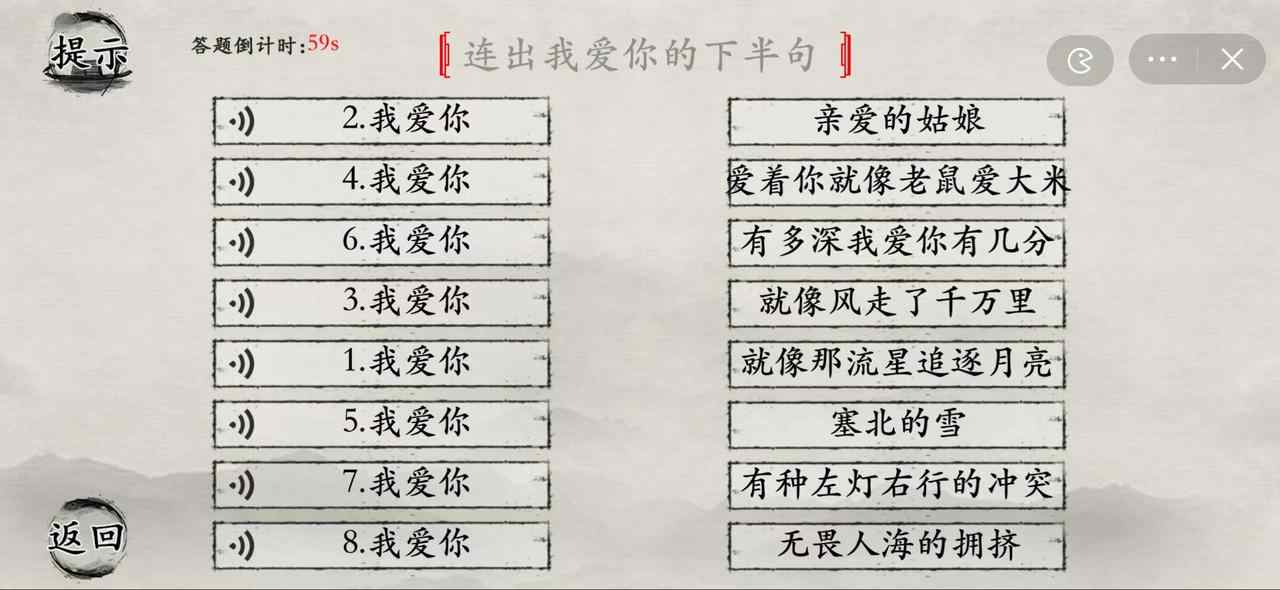 提示
答题倒计时:59s
连出我爱你的下半句
2.我爱你
亲爱的姑娘
4.我爱你
爱着你就像老鼠爱大米
6.我爱你
有多深我爱你有几分
3.我爱你
就像风走了千万里
1.我爱你
就像那流星追逐月亮
5.我爱你
塞北的雪
7.我爱你
有种左灯右行的冲突
8.我爱你
无畏人海的拥挤
返回